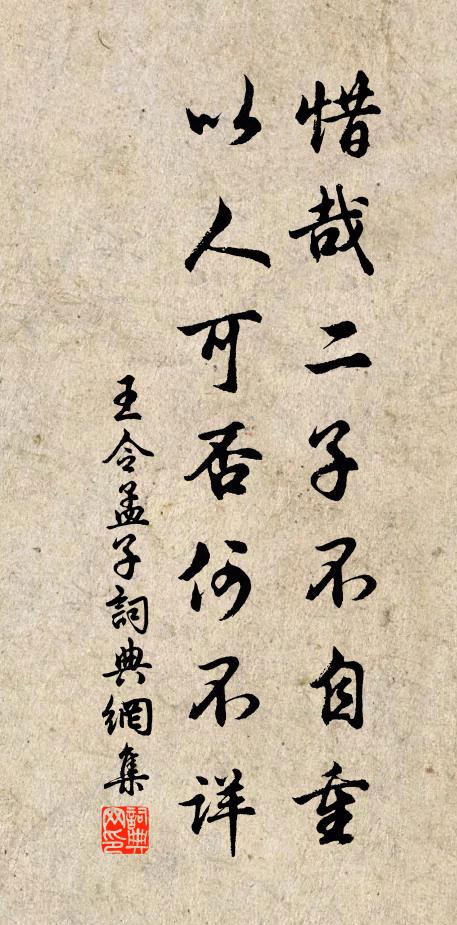 惜哉二子不自重
以人可否何不详
王令孟子詞典網集
詞典網印